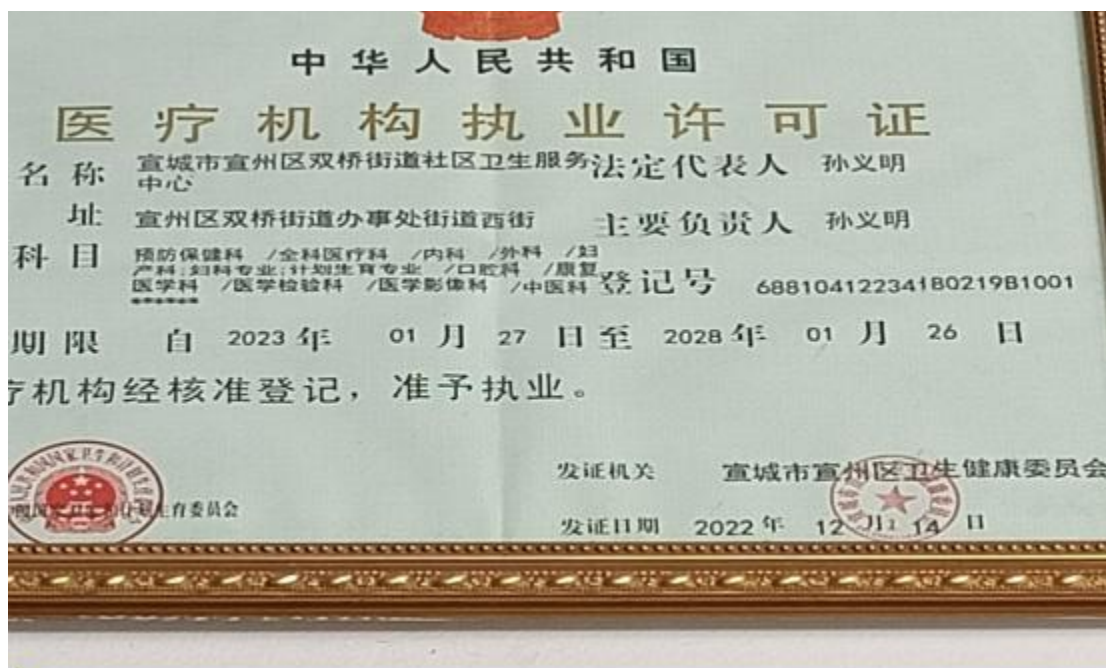 中华人民共和国
医疗机构执业许可证
名称 宣城市宣州区双桥街道社区卫生服务中心
法定代表人 孙义明
址 宣州区双桥街道办事处街道西街
主要负责人 孙义明
科目 预防保健科 /全科医疗科 /内科 /外科 /妇
产科;妇科专业;计划生育专业 /口腔科 /康复
医学科 /医学检验科 /医学影像科 /中医科
******
登记号 68810412234180219B1001
期限 自 2023 年 01 月 27 日至 2028 年 01 月 26 日
疗机构经核准登记，准予执业。
发证机关 宣城市宣州区卫生健康委员会
生育委员会
发证日期 2022 年 12 月 14 日